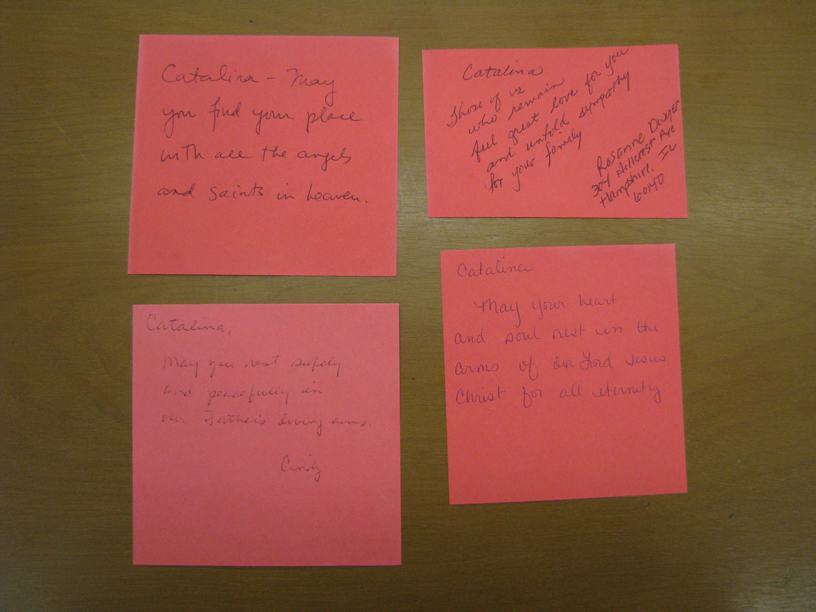 Catalina - May
you find your place
with all the angels
and saints in heaven.
Catalina
Those of us
who remain
feel great love for you
and untold sympathy
for your family
Rosanne Dwyer
304 Hillcrest Ave
Hampshire, IL
60140
Catalina,
May you rest safely
and peacefully in
our Father's loving arms.
Cindy
Catalina
May your heart
and soul rest in the
arms of our Lord Jesus
Christ for all eternity